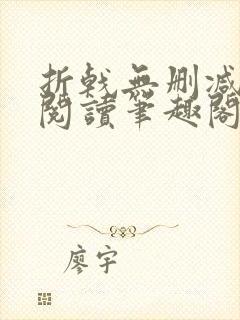 折戟無刪減
閱讀筆趣閣
廖宇